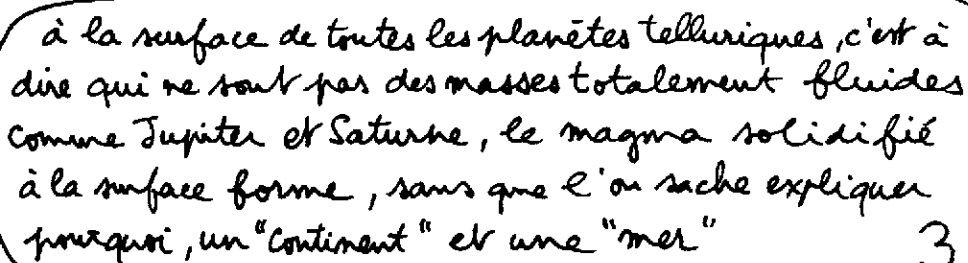 à la surface de toutes les planètes telluriques, c'est à
dire qui ne sont pas des masses totalement fluides
comme Jupiter et Saturne, le magma solidifié
à la surface forme, sans que l'on sache expliquer
pourquoi, un "continent" et une "mer"
3